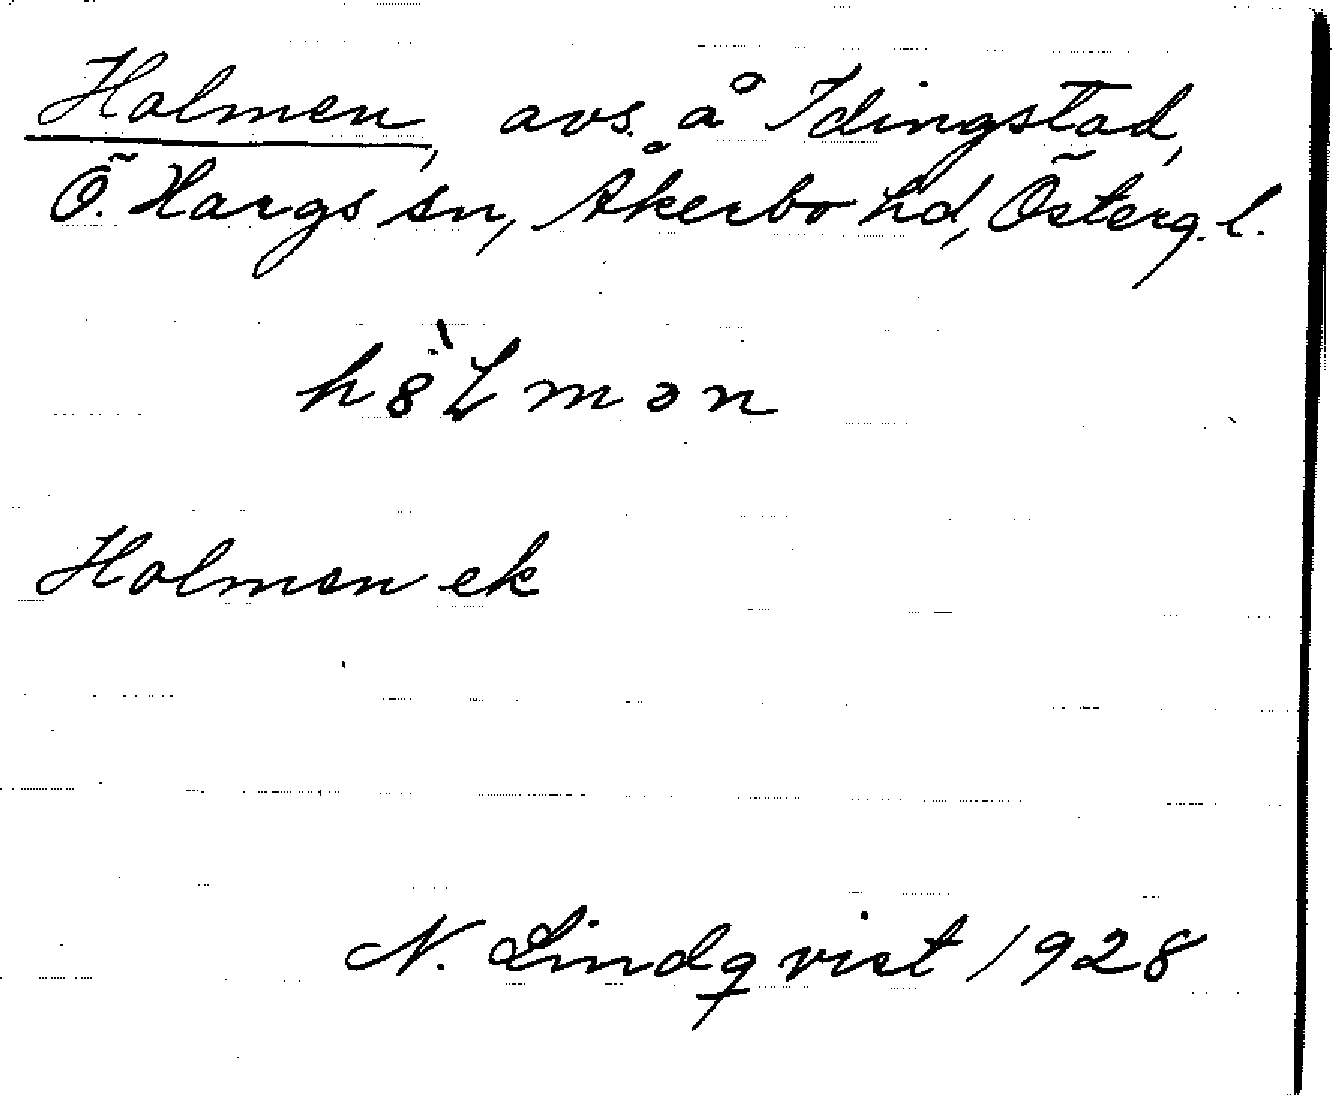 Holmen, avs. å Idingstad,
Ö. Hargs sn, Åkerbo hd, Österg. l.
hȣ̀Lmən
Holmen ek
N. Lindqvist 1928